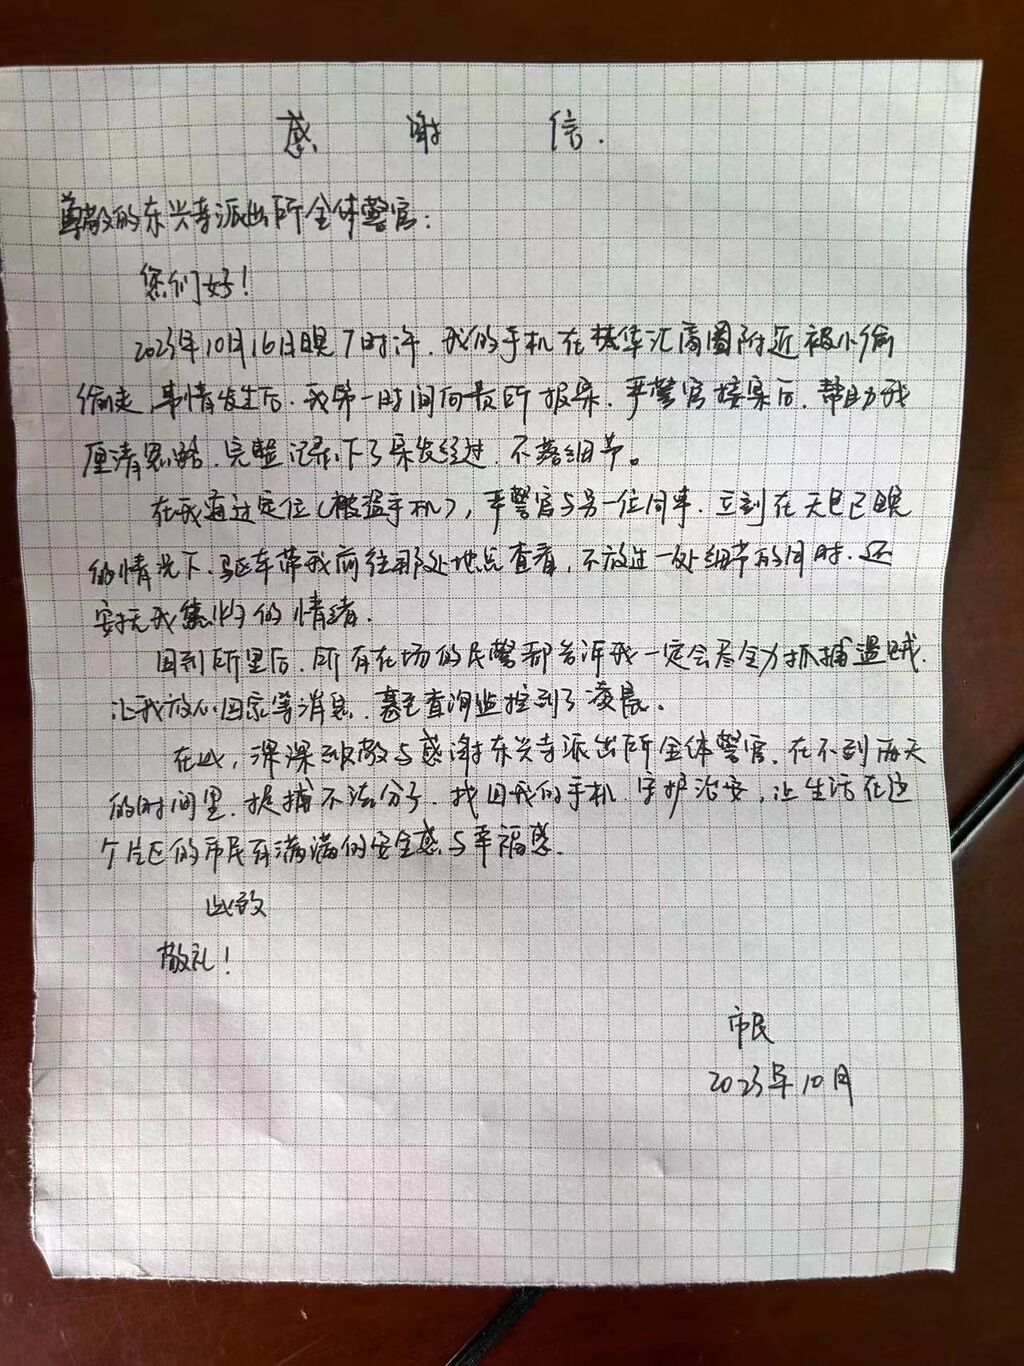 感谢信.
尊敬的东兴寺派出所全体警官:
您们好!
2023年10月16日晚7时许,我的手机在楚华汇商圈附近被小偷
偷走,事情发生后,我第一时间向贵所报案,严警官接案后,帮助我
厘清思路,完整记录下了案发经过,不落细节。
在我通过定位(被盗手机),严警官与另一位同事,立刻在天色已晚
的情况下,驱车带我前往那处地点查看,不放过一处细节的同时,还
安抚我焦灼的情绪.
回到所里后,所有在场的民警都告诉我一定会尽全力抓捕盗贼,
让我放心回家等消息,甚至查询监控到了凌晨。
在此,深深致敬与感谢东兴寺派出所全体警官,在不到两天
的时间里,捉捕不法分子,找回我的手机,守护治安,让生活在这
个片区的市民有满满的安全感与幸福感.
此致
敬礼!
市民
2023年10月